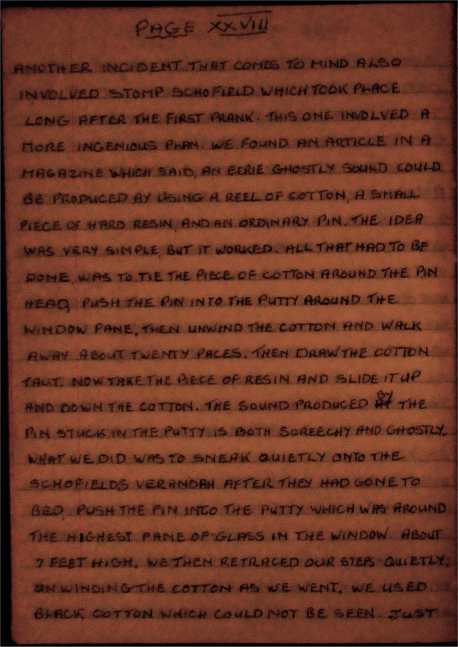 PAGE XXVIII
ANOTHER INCIDENT THAT COMES TO MIND ALSO
INVOLVED STOMP SCHOFIELD WHICH TOOK PLACE
LONG AFTER THE FIRST PRANK. THIS ONE INVOLVED A
MORE INGENIOUS PLAN. WE FOUND AN ARTICLE IN A
MAGAZINE WHICH SAID, AN EERIE GHOSTLY SOUND COULD
BE PRODUCED BY USING A REEL OF COTTON, A SMALL
PIECE OF HARD RESIN, AND AN ORDINARY PIN. THE IDEA
WAS VERY SIMPLE, BUT IT WORKED. ALL THAT HAD TO BE
DONE, WAS TO TIE THE PIECE OF COTTON AROUND THE PIN
HEAD, PUSH THE PIN INTO THE PUTTY AROUND THE
WINDOW PANE, THEN UNWIND THE COTTON AND WALK
AWAY ABOUT TWENTY PACES. THEN DRAW THE COTTON
TAUT. NOW TAKE THE PIECE OF RESIN AND SLIDE IT UP
AND DOWN THE COTTON. THE SOUND PRODUCED BY THE
PIN STUCK IN THE PUTTY IS BOTH SCREECHY AND GHOSTLY.
WHAT WE DID WAS TO SNEAK QUIETLY ONTO THE
SCHOFIELDS VERANDAH AFTER THEY HAD GONE TO
BED, PUSH THE PIN INTO THE PUTTY WHICH WAS AROUND
THE HIGHEST PANE OF GLASS IN THE WINDOW ABOUT
7 FEET HIGH. WE THEN RETRACED OUR STEPS QUIETLY,
UNWINDING THE COTTON AS WE WENT. WE USED
BLACK COTTON WHICH COULD NOT BE SEEN. JUST